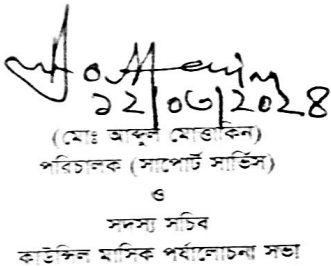 ১২/০৩/২০২৪
(মোঃ আব্দুল মোত্তাকিন)
পরিচালক (সাপোর্ট সার্ভিস)
ও
সদস্য সচিব
কাউন্সিল মাসিক পর্যালোচনা সভা